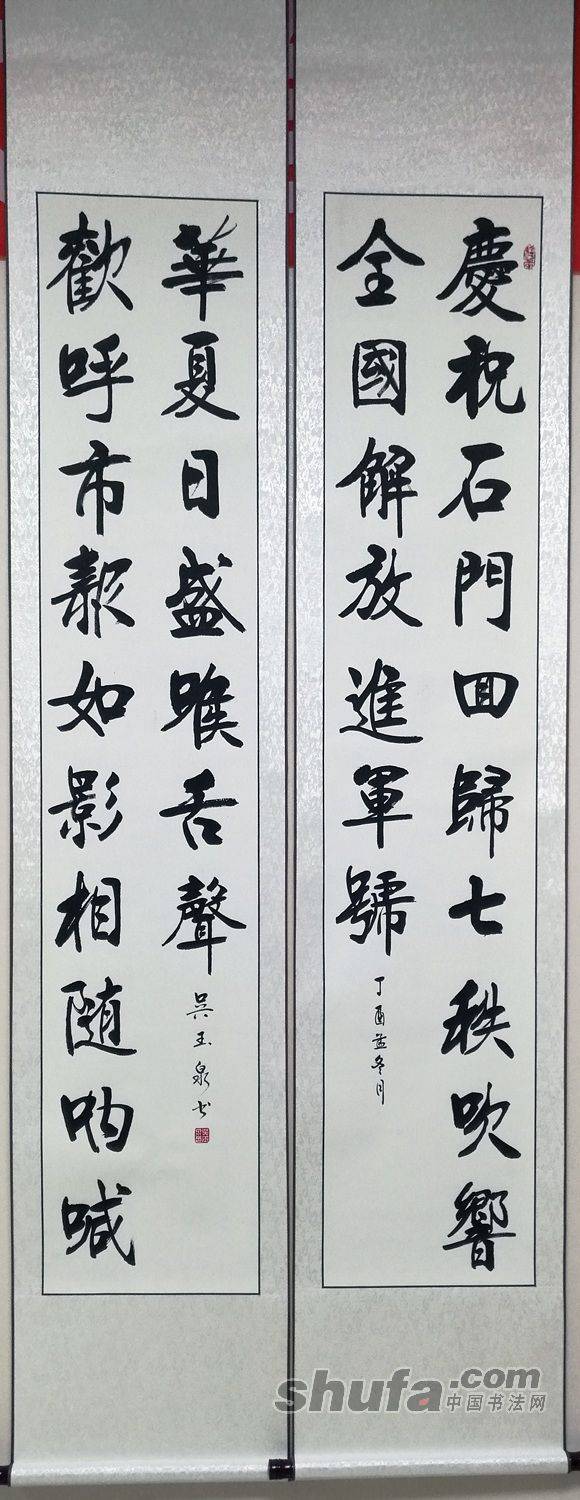 慶祝石門囬歸七秩吹響
全國解放進軍號
丁酉孟冬月
歡呼市報如影相随吶喊
華夏日盛喉舌聲
吳玉泉书
shufa.com
中国书法网